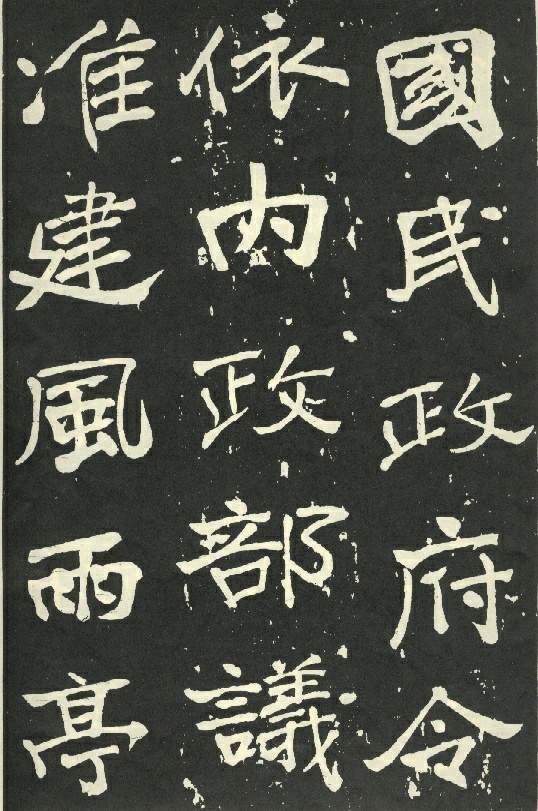 國民政府令
依内政部議
准建風雨亭